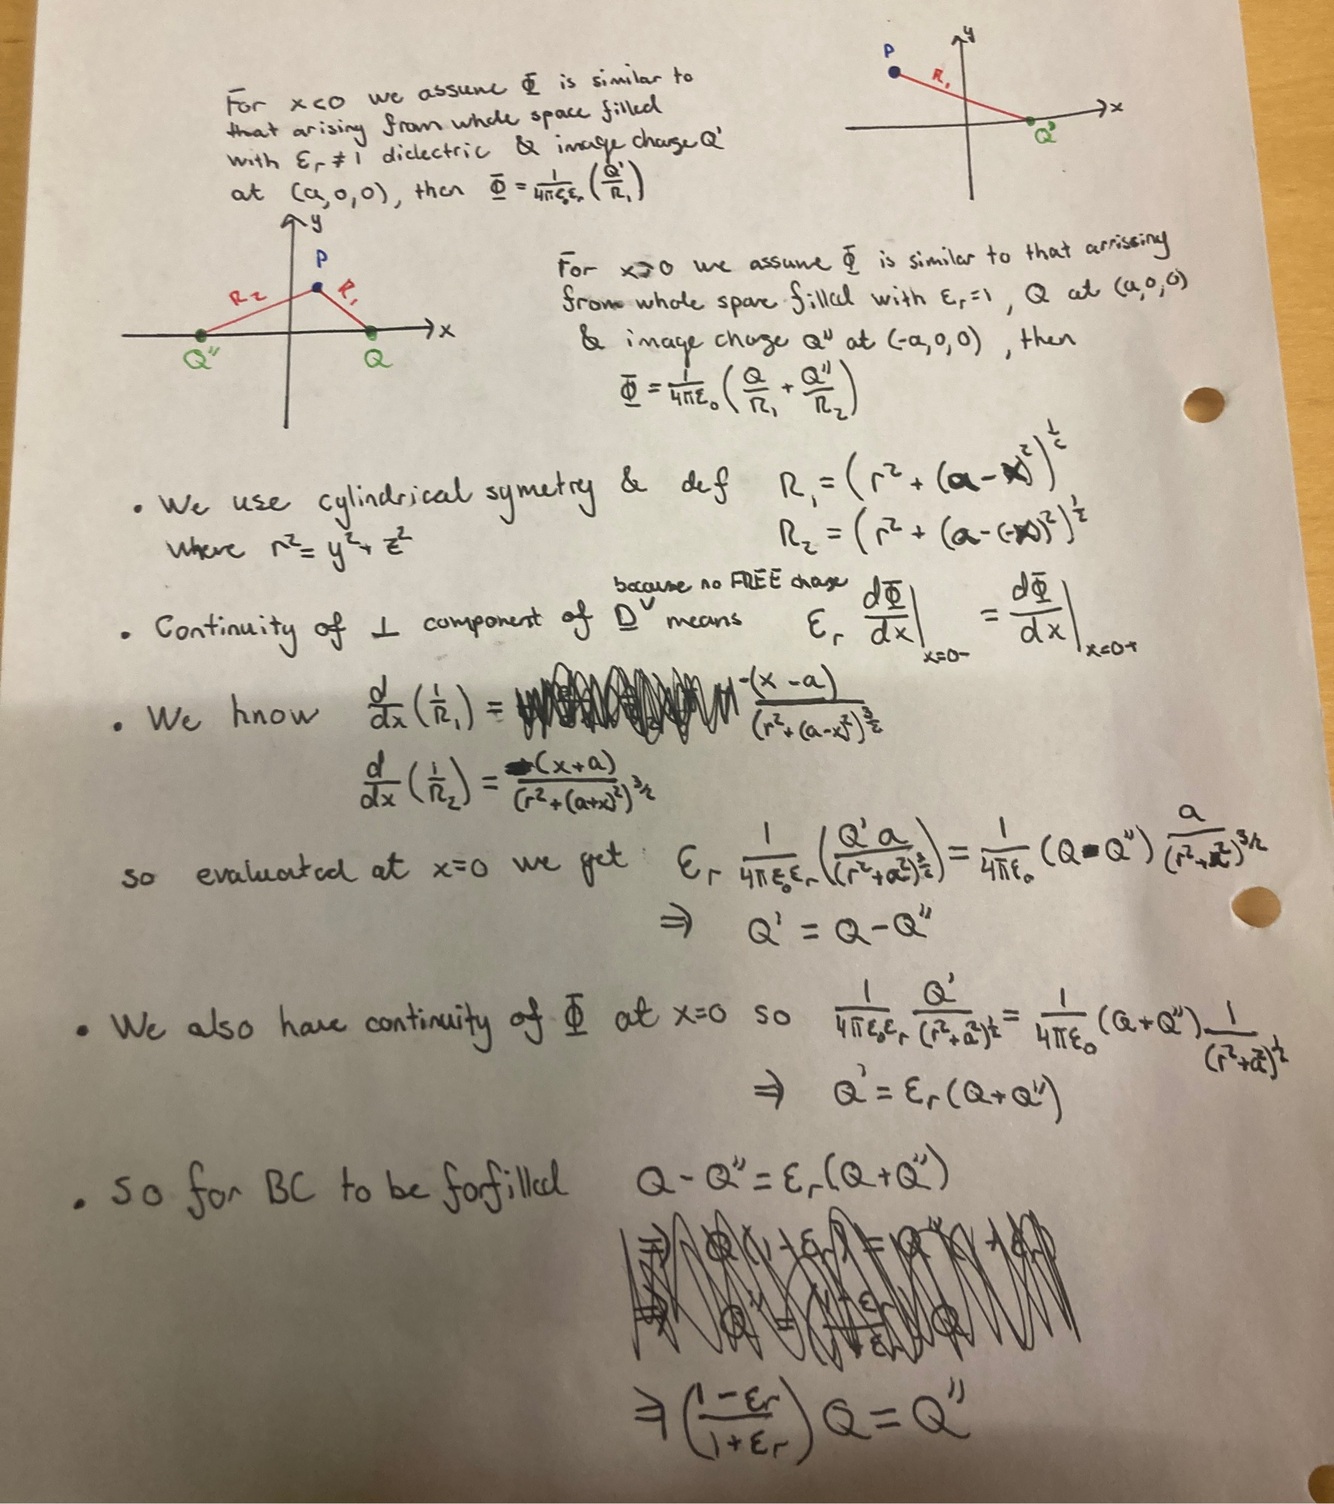 For x<0 we assume Φ is similar to
that arising from whole space filled
with εr ≠ 1 dielectric & image charge Q'
at (a,0,0), then Φ = 1/4πε₀εr (Q'/R₁)
y
P
R₁
x
Q'
y
P
R₂
R₁
x
Q''
Q
For x>0 we assume Φ is similar to that arrissing
from whole space filled with εr=1, Q at (a,0,0)
& image charge Q'' at (-a,0,0), then
Φ = 1/4πε₀ (Q/R₁ + Q''/R₂)
• We use cylindrical symetry & def R₁ = (r² + (a-x)²)^½
where r² = y²+z² R₂ = (r² + (a-(-x))²)^½
because no FREE charge
• Continuity of ⊥ component of D means εr dΦ/dx |x=0- = dΦ/dx |x=0+
• We know d/dx (1/R₁) = -(x-a)/(r²+(a-x)²)^3/2
d/dx (1/R₂) = -(x+a)/(r²+(a+x)²)^3/2
so evaluated at x=0 we get εr 1/4πε₀εr (Q'a/(r²+a²)^3/2) = 1/4πε₀ (Q-Q'') a/(r²+a²)^3/2
⇒ Q' = Q-Q''
• We also have continuity of Φ at x=0 so 1/4πε₀εr Q'/(r²+a²)^½ = 1/4πε₀ (Q+Q'') 1/(r²+a²)^½
⇒ Q' = εr(Q+Q'')
• So for BC to be forfilled Q-Q'' = εr(Q+Q'')
⇒ (1-εr/1+εr) Q = Q''